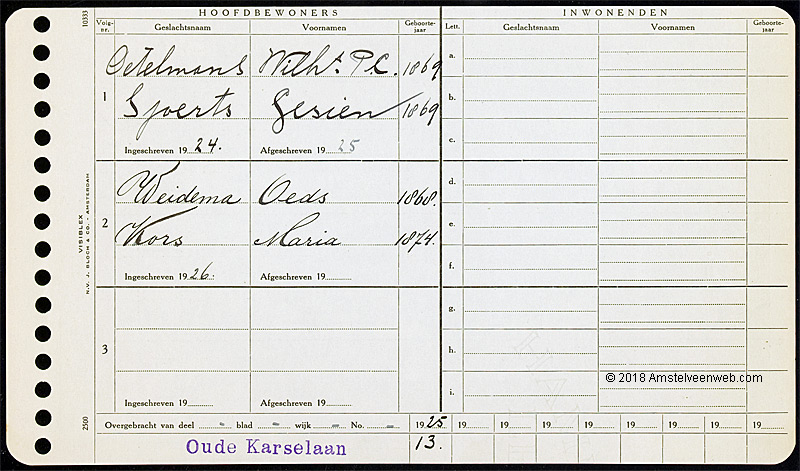 HOOFDBEWONERS INWONENDEN
10333
Volg-nr. Geslachtsnaam Voornamen Geboorte-jaar Lett. Geslachtsnaam Voornamen Geboorte-jaar
Oetelmans Wilht. P.C. 1869 a.
1 Sjoerts Gesien 1869 b.
Ingeschreven 1924. Afgeschreven 1925 c.
Weidema Oeds 1868. d.
2 Kors Maria 1874. e.
Ingeschreven 1926. Afgeschreven 19 f.
VISIBLEX
N.V. J. BLOCH & CO. - AMSTERDAM
g.
3 h.
Ingeschreven 19 Afgeschreven 19 i.
© 2018 Amstelveenweb.com
2500
Overgebracht van deel - blad - wijk - No. - 1925 19 19 19 19 19 19 19 19
Oude Karselaan 13.